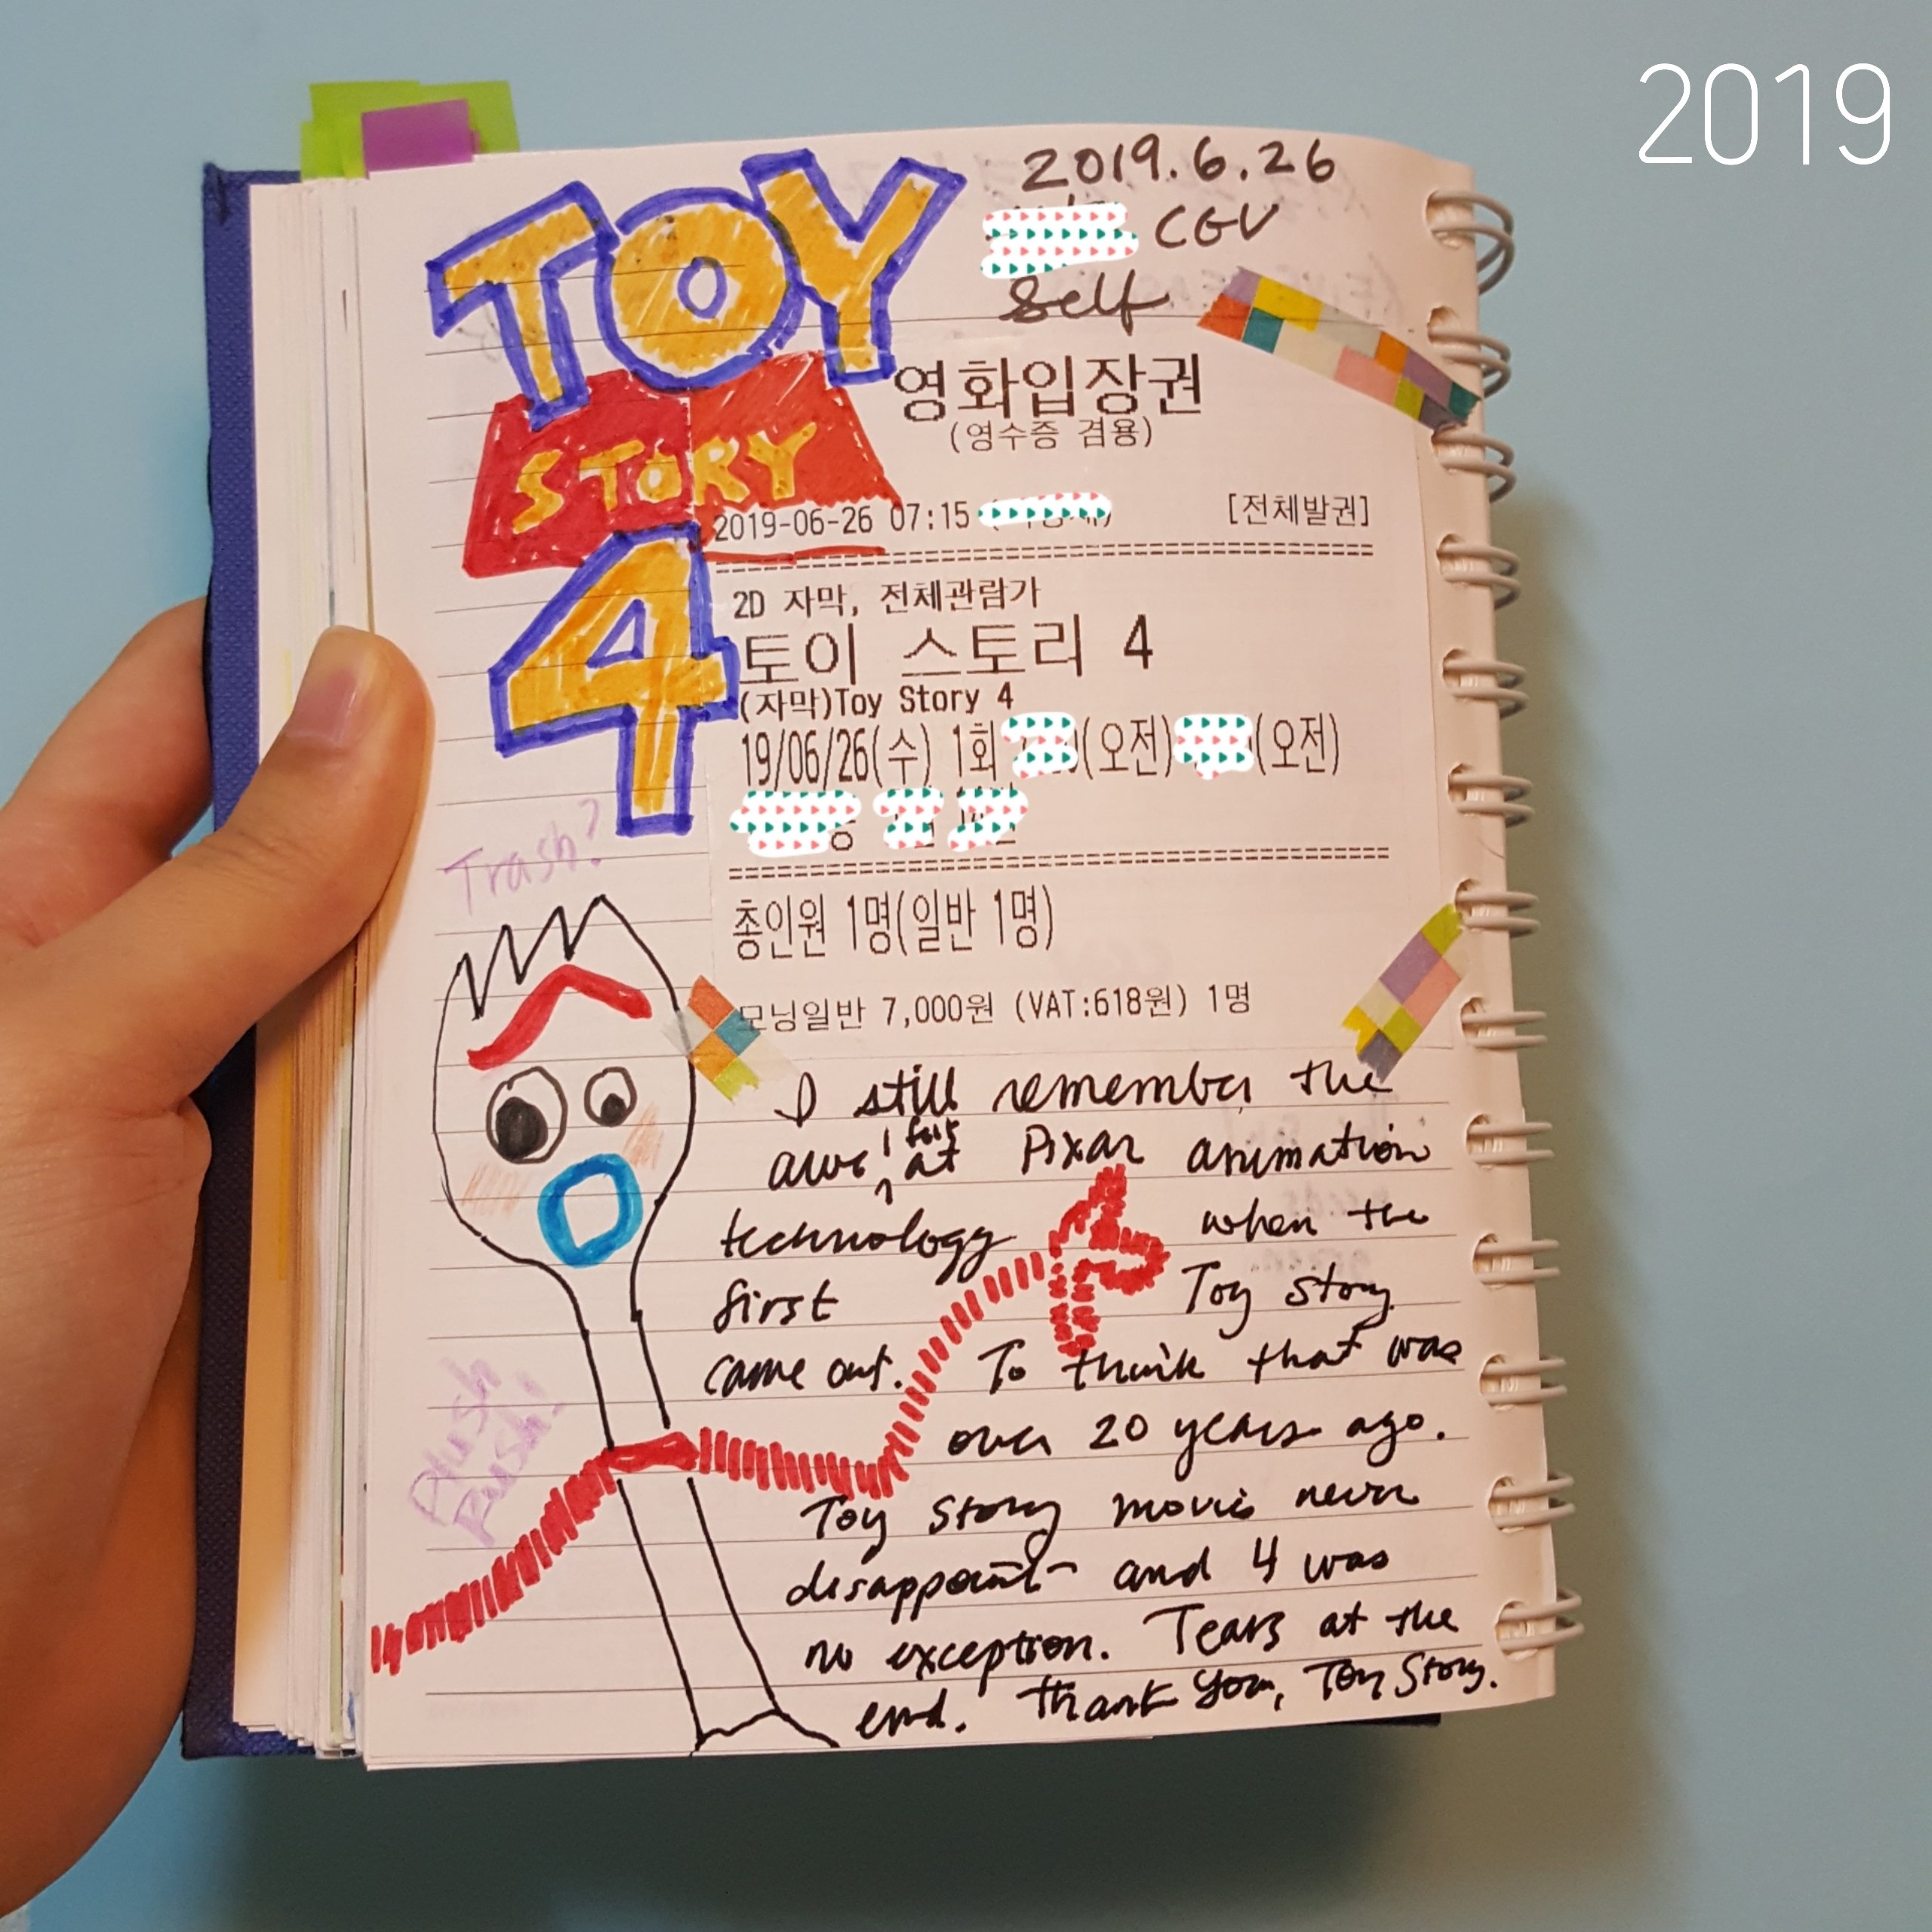 2019
2019.6.26
CGV
Self
TOY
STORY
4
영화입장권
(영수증 겸용)
2019-06-26 07:15
[전체발권]
2D 자막, 전체관람가
토이 스토리 4
(자막)Toy Story 4
19/06/26(수) 1회 (오전) (오전)
총인원 1명(일반 1명)
모닝일반 7,000원 (VAT:618원) 1명
Trash?
I still remember the
awe I felt at Pixar animation
technology when the
first Toy Story
came out. To think that was
over 20 years ago.
Toy Story movie never
disappoint and 4 was
no exception. Tears at the
end. Thank you, Toy Story.
Plush
Rush!